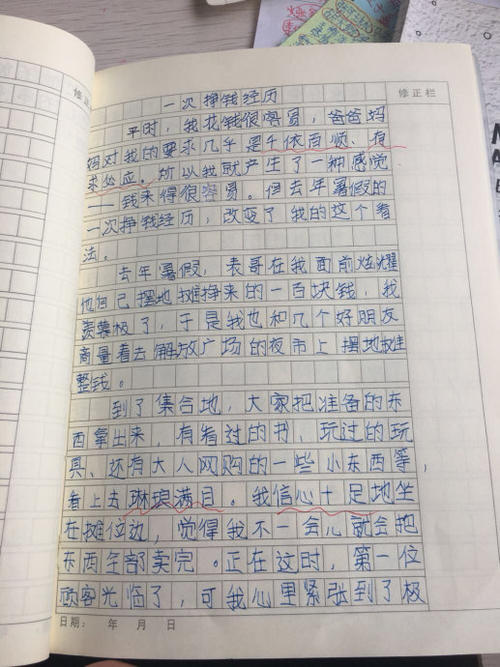 修正栏
修正栏
一次挣钱经历
平时，我花钱很容易，爸爸妈
妈对我的要求几乎是千依百顺、有
求必应。所以我就产生了一种感觉
——钱来得很容易。但去年暑假的
一次挣钱经历，改变了我的这个看
法。
去年暑假，表哥在我面前炫耀
他自己摆地摊挣来的一百块钱，我
羡慕极了，于是我也和几个好朋友
商量着去解放广场的夜市上摆地摊
整钱。
到了集合地，大家把准备的东
西拿出来，有看过的书、玩过的玩
具、还有大人网购的一些小东西等，
看上去琳琅满目。我信心十足地坐
在摊位边，觉得我不一会儿就会把
东西全部卖完。正在这时，第一位
顾客光临了，可我心里紧张到了极
日期： 年 月 日